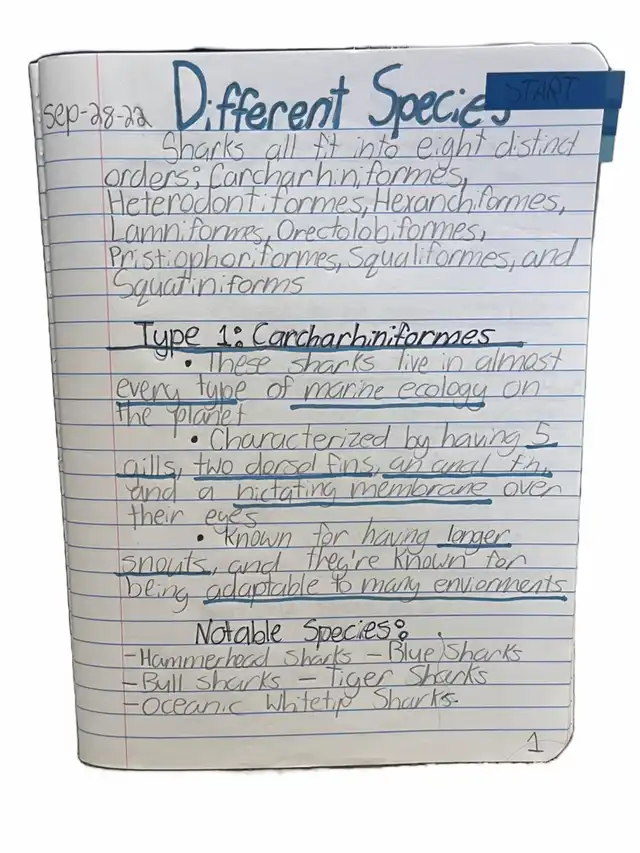 START
Different Species
Sep-28-22
Sharks all fit into eight distinct
orders; Carcharhiniformes,
Heterodontiformes, Hexanchiformes,
Lamniformes, Orectolobiformes,
Pristiophoriformes, Squaliformes, and
Squatiniforms
Type 1: Carcharhiniformes
• These sharks live in almost
every type of marine ecology on
the planet
• Characterized by having 5
gills, two dorsel fins, an anal fin,
and a nictating membrane over
their eyes
• Known for having longer
snouts, and they're known for
being adaptable to many enviorments
Notable Species:
-Hammerhead sharks - Blue Sharks
-Bull sharks - Tiger Sharks
-Oceanic Whitetip Sharks
1